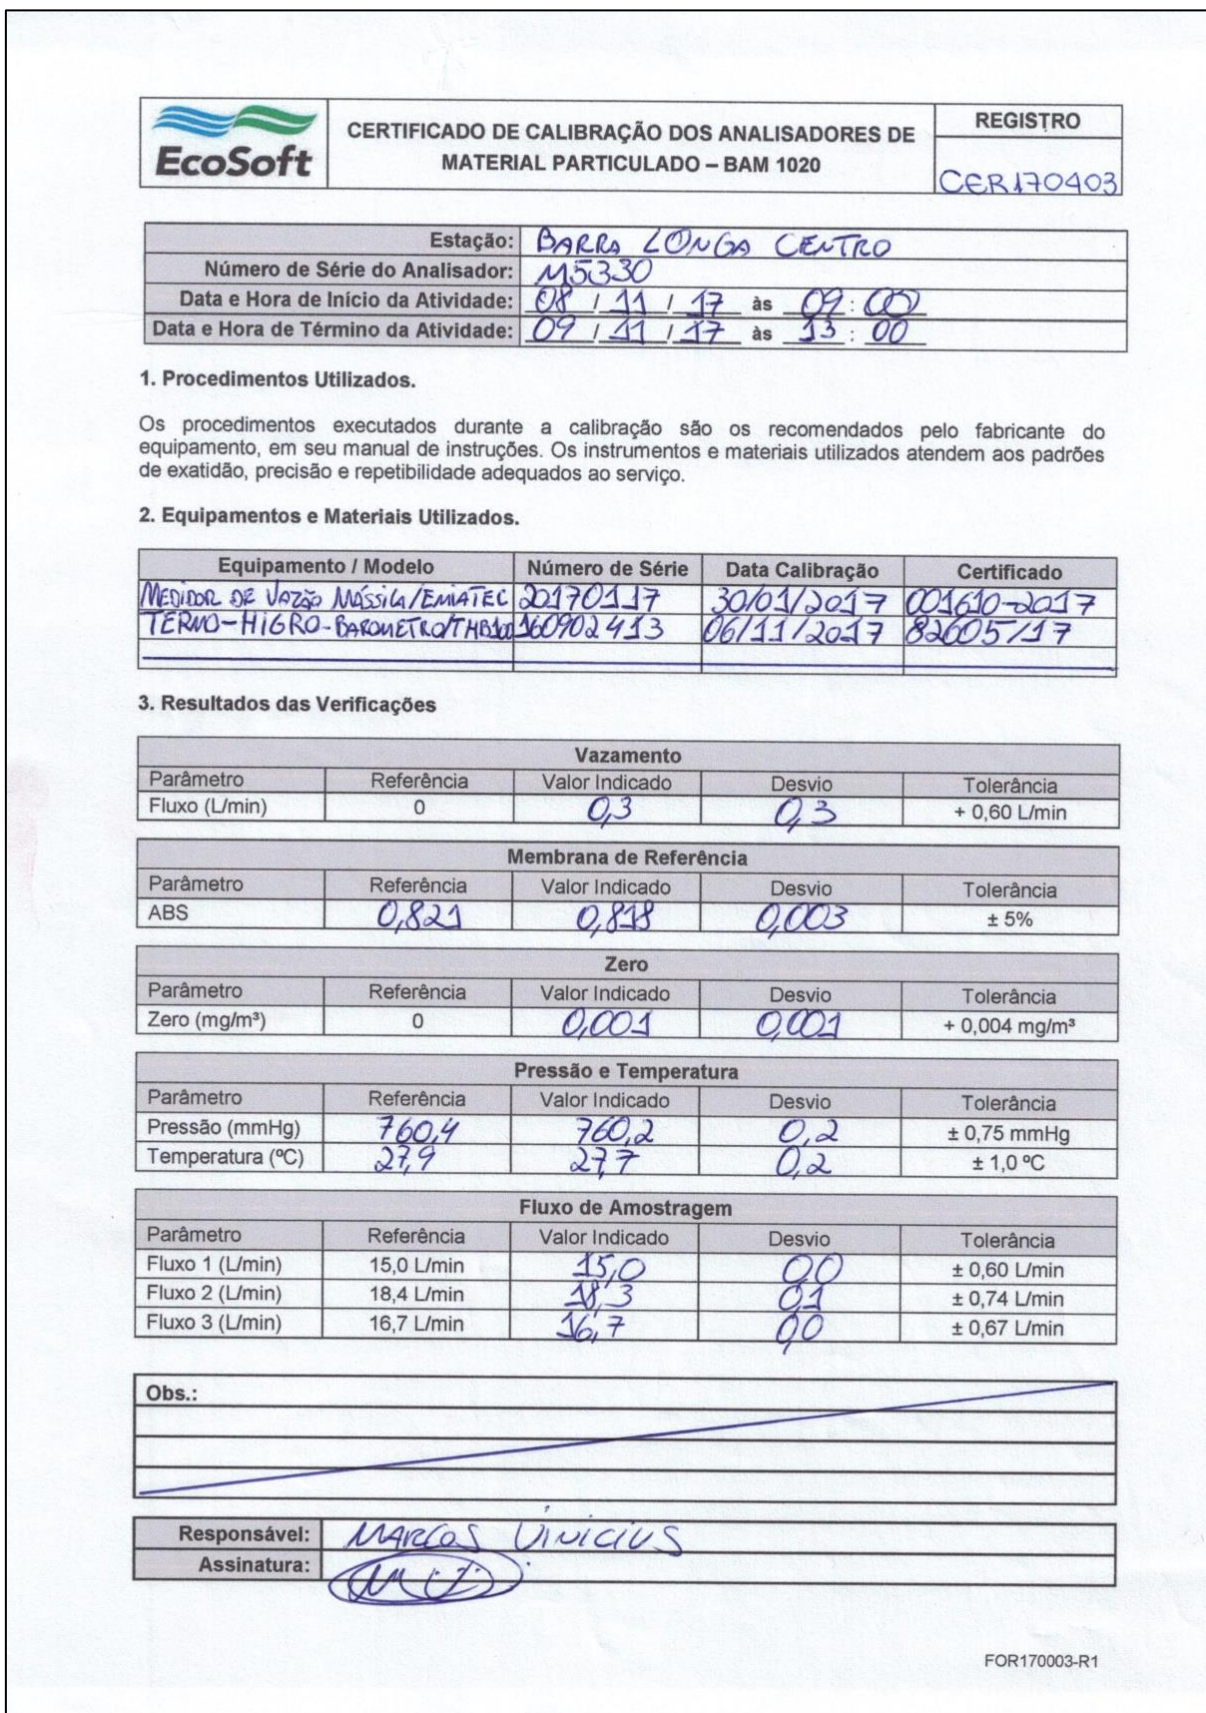 EcoSoft
CERTIFICADO DE CALIBRAÇÃO DOS ANALISADORES DE
MATERIAL PARTICULADO – BAM 1020
REGISTRO
CER170403
Estação: BARRA LONGA CENTRO
Número de Série do Analisador: M5330
Data e Hora de Início da Atividade: 08 / 11 / 17 às 09 : 00
Data e Hora de Término da Atividade: 09 / 11 / 17 às 13 : 00
1. Procedimentos Utilizados.
Os procedimentos executados durante a calibração são os recomendados pelo fabricante do
equipamento, em seu manual de instruções. Os instrumentos e materiais utilizados atendem aos padrões
de exatidão, precisão e repetibilidade adequados ao serviço.
2. Equipamentos e Materiais Utilizados.
Equipamento / Modelo Número de Série Data Calibração Certificado
MEDIDOR DE VAZÃO MÁSSICA/EMIATEC 20170117 30/01/2017 001610-2017
TERMO-HIGRO-BAROMETRO/THB100 160902413 06/11/2017 82605/17
3. Resultados das Verificações
Vazamento
Parâmetro Referência Valor Indicado Desvio Tolerância
Fluxo (L/min) 0 0,3 0,3 + 0,60 L/min
Membrana de Referência
Parâmetro Referência Valor Indicado Desvio Tolerância
ABS 0,821 0,818 0,003 ± 5%
Zero
Parâmetro Referência Valor Indicado Desvio Tolerância
Zero (mg/m³) 0 0,001 0,001 + 0,004 mg/m³
Pressão e Temperatura
Parâmetro Referência Valor Indicado Desvio Tolerância
Pressão (mmHg) 760,4 760,2 0,2 ± 0,75 mmHg
Temperatura (ºC) 27,9 27,7 0,2 ± 1,0 ºC
Fluxo de Amostragem
Parâmetro Referência Valor Indicado Desvio Tolerância
Fluxo 1 (L/min) 15,0 L/min 15,0 0,0 ± 0,60 L/min
Fluxo 2 (L/min) 18,4 L/min 18,3 0,1 ± 0,74 L/min
Fluxo 3 (L/min) 16,7 L/min 16,7 0,0 ± 0,67 L/min
Obs.:
Responsável: MARCOS VINICIUS
Assinatura:
FOR170003-R1